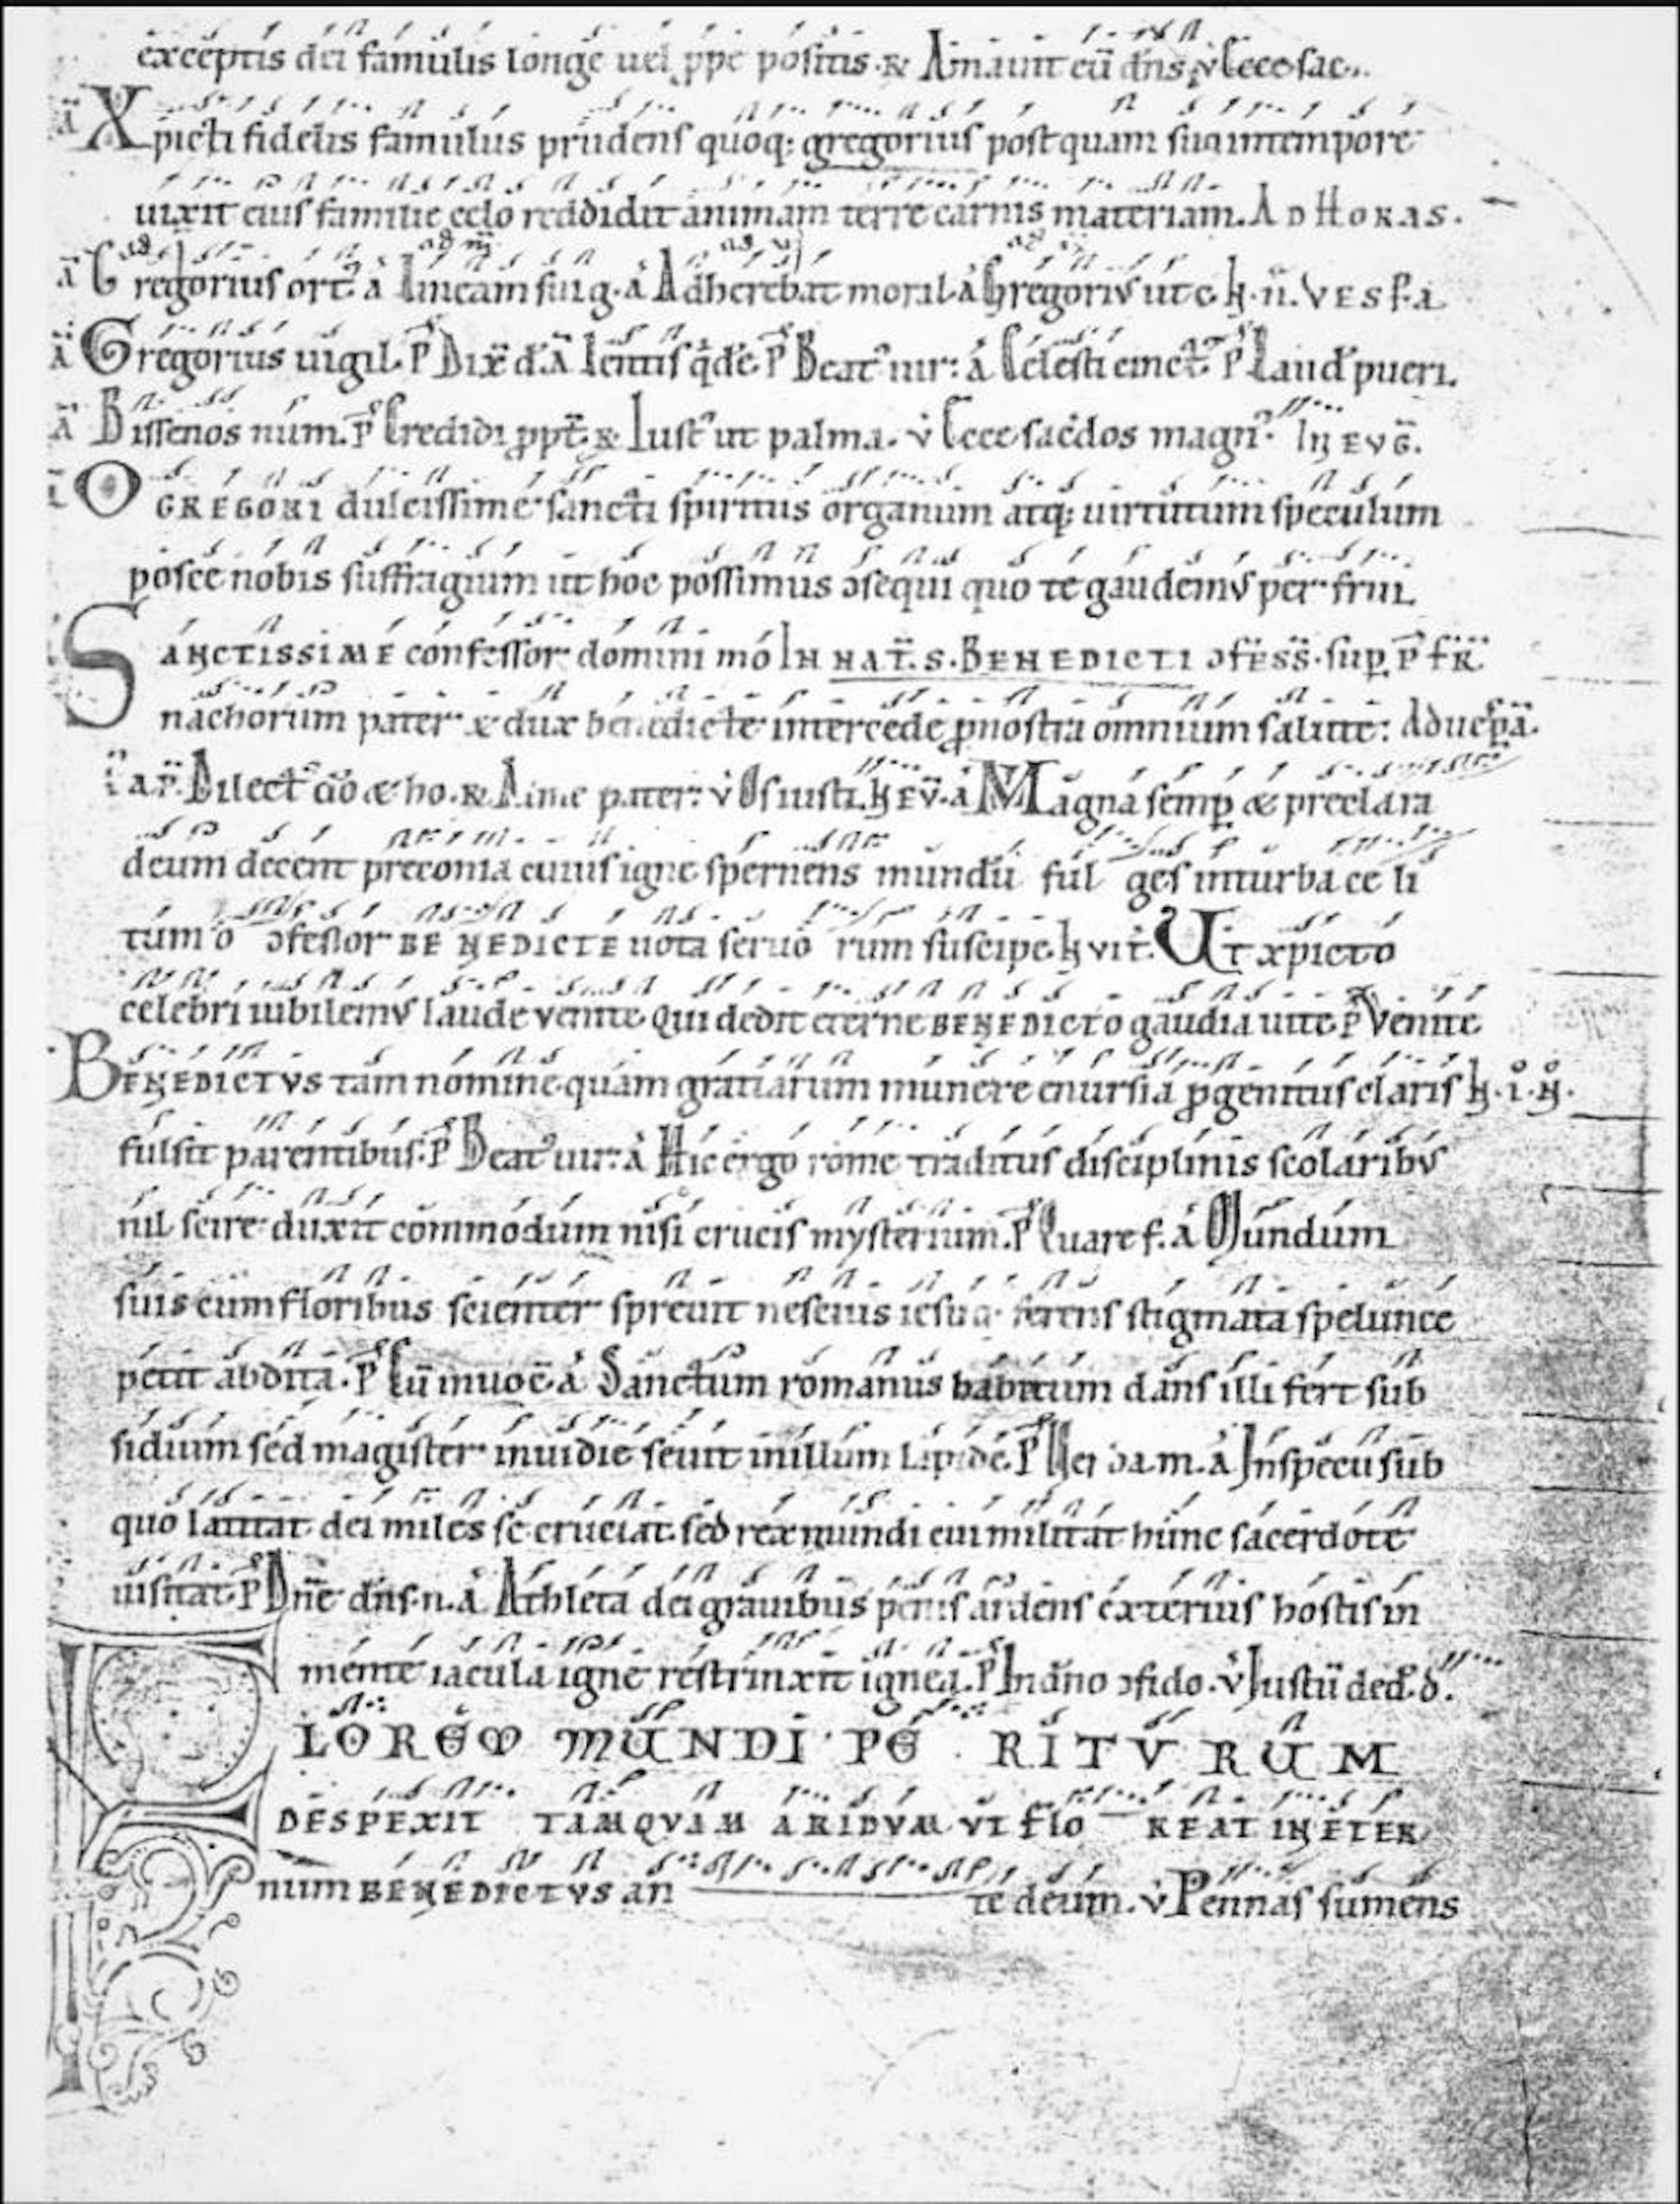 exceptis dei famulis longe uel ppe positis. & Amauit eū dn̄s v̇ Ecce sac.
ā Xpicti fidelis famulus prudens quoq: gregorius postquam suo intempore
uixit eius familie celo reddidit animam terre carnis materiam. AD HORAS.
ā Gregorius ort ȧ Lineam sui g. ȧ Adherebat moral ȧ Gregoriꝰ ut e VESPA
ā Gregorius uigil. P̄ Dix̄ d. ā Ientis q̇de. P̄ Beatꝰ uir: ȧ Celesti cinct. P̄ Laud pueri.
ā Bissenos num. P̄ Credidi ppt. & Iustꝰ ut palma. v̇ Ecce sacdos magnꝰ. IN EVG.
O GREGORI dulcissime sancti spiritus organum atq; uirtutum speculum
posce nobis suffragium ut hoc possimus ɔsequi quo te gaudemꝰ per frui.
SANCTISSIME confessor domini mo IN NAT. S. BENEDICTI ɔfess. sup P̄ fr̄
nachorum pater & dux benedicte intercede pnostra omnium salute: Aduespā.
ap. Dilect do & ho. & Aime pater: v̇ Os iusti. N EV. ȧ Magna semp & preclara
deum decent preconia cuius igne spernens mundū ful ges inturba ce li
tum o ɔfessor BE NEDICTE uota seruo rum suscipe. N VIT. UT xpicto
celebri iubilemꝰ laude uenite Qui dedit eterne BENEDICTO gaudia uite. P̄ Venite
BENEDICTVS tam nomine quam gratiarum munere enursia pgenitus claris N. I. N.
fulsit parentibus. P̄ Beatꝰ uir: ȧ Hic ergo rome traditus disciplinis scolaribꝰ
nil scire duxit commodum nisi crucis mysterium. P̄ Quare f. ȧ Mundum
suis cum floribus scienter spreuit nescius iesuq. ferens stigmata spelunce
petit abdita. P̄ Cū inuoc̄ ȧ Sanctum romanus habitum dans illi fert sub
sidium sed magister inuidie seuit inillum lapide. P̄ Uerba. m. ȧ Inspecu sub
quo latitat dei miles se cruciat. sed rex mundi cui militat hunc sacerdote
uisitat. P̄ Dn̄e dn̄s. n. ȧ Athleta dei grauibus penis ardens exterius hostis in
mente iacula igne restrinxit ignea. P̄ Indn̄o ɔfido. v̇ Iustū ded. d.
FLOREM MUNDI PE RITVRUM
DESPEXIT TAMQVAM ARIDVM VT FLO REAT IN ETER
num BENEDICTVS an te deum. v̇ Pennas sumens